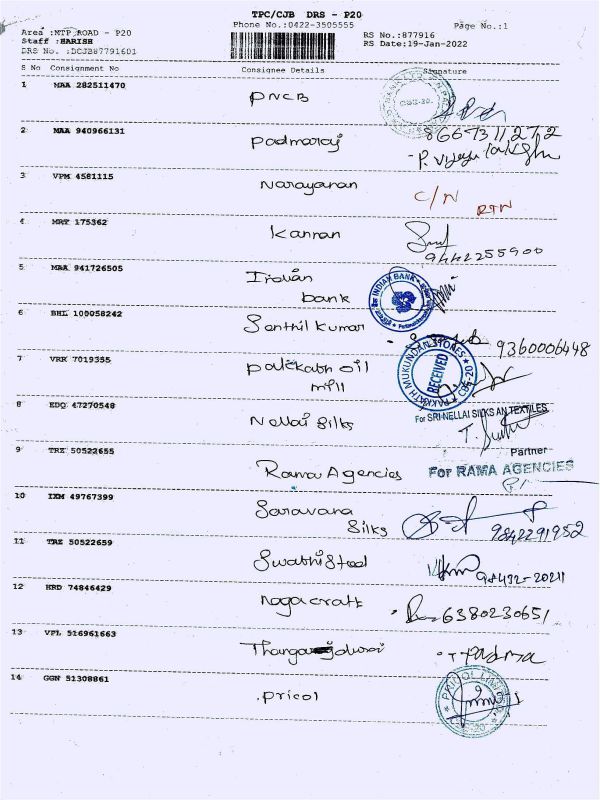 TPC/CJB DRS - P20
Phone No.:0422-3505555
Page No.:1
Area :MTP ROAD - P20
Staff :HARISH
DRS No. :DCJB87791601
RS No.:877916
RS Date:19-Jan-2022
S No Consignment No Consignee Details Signature
1 MAA 282511470 PNCB
2 MAA 940966131 Padmaraj 8667311272
P. Vijaya
3 VPM 4581115 Narayanan C/N RTN
4 MRT 175362 Kannan 9442255900
5 MAA 941726505 Indian bank INDIAN BANK
6 BHL 100058242 Senthil Kumar 9360006448
7 VRK 7019355 palakkabn oil mill MUKUNDAN STORES RECEIVED
8 EDQ 47270548 Nellai Silks For SRI-NELLAI SILKS AN TEXTILES
Partner
9 TRZ 50522655 Rama Agencies For RAMA AGENCIES
10 IXM 49767399 Saravana Silks 9842291952
11 TRZ 50522659 Swathi Steel 98432-20211
12 HRD 74846429 Naga craft 6380230651
13 VPL 516961663 T Padma
14 GGN 51308861 pricol PRICOL LIMITED